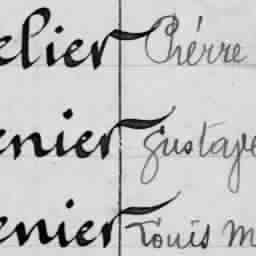 elier Pierre
enier Gustave
enier Louis M